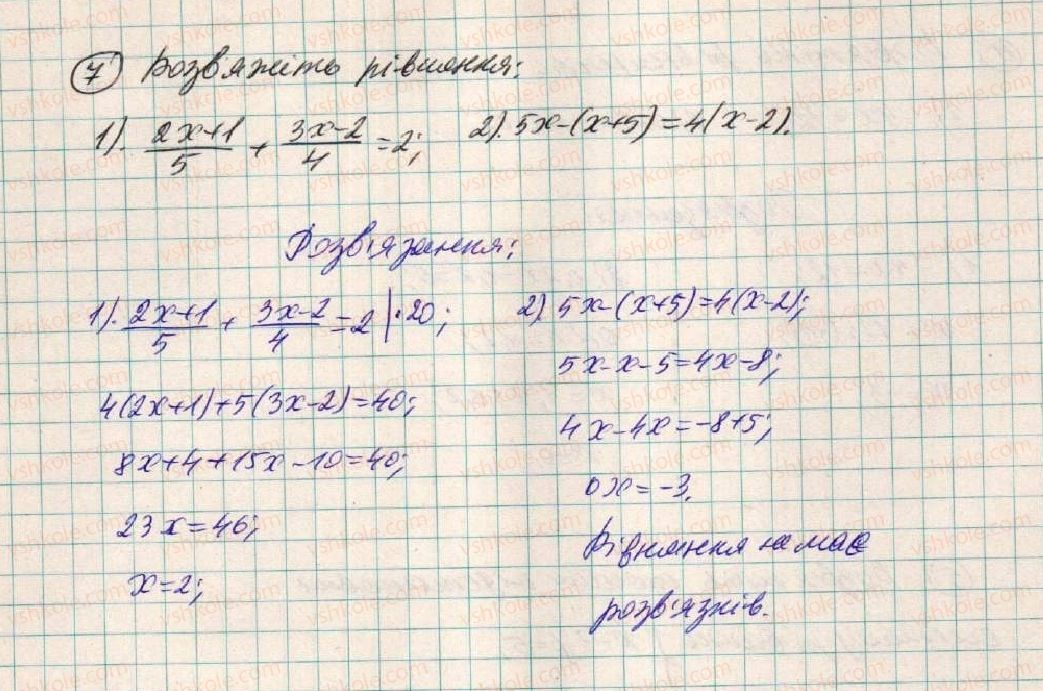 7 Розв'яжіть рівняння:
1). (2x+1)/5 + (3x-2)/4 = 2; 2). 5x-(x+5)=4(x-2).
Розв'язання:
1). (2x+1)/5 + (3x-2)/4 = 2 | ·20;
4(2x+1)+5(3x-2)=40;
8x+4+15x-10=40;
23x=46;
x=2;
2) 5x-(x+5)=4(x-2);
5x-x-5=4x-8;
4x-4x=-8+5;
0x=-3.
Рівняння не має
розв'язків.